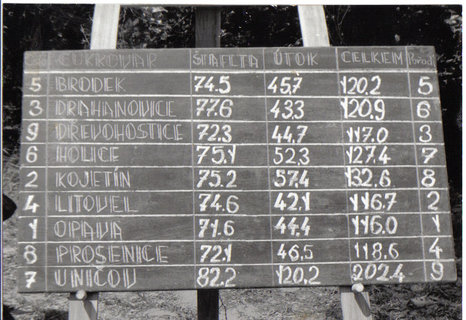 CUKROVAR ŠTAFETA ÚTOK CELKEM Pořad.
5 BRODEK 74.5 45,7 120,2 5
3 DRAHANOVICE 77.6 43.3 120.9 6
9 DŘEVOHOSTICE 72.3 44.7 117.0 3
6 HOLICE 75.1 52,3 127.4 7
2 KOJETÍN 75.2 57.4 132.6 8
4 LITOVEL 74.6 42.1 116.7 2
1 OPAVA 71.6 44.4 116.0 1
8 PROSENICE 72.1 46,5 118,6 4
7 UNIČOV 82.2 120,2 202.4 9